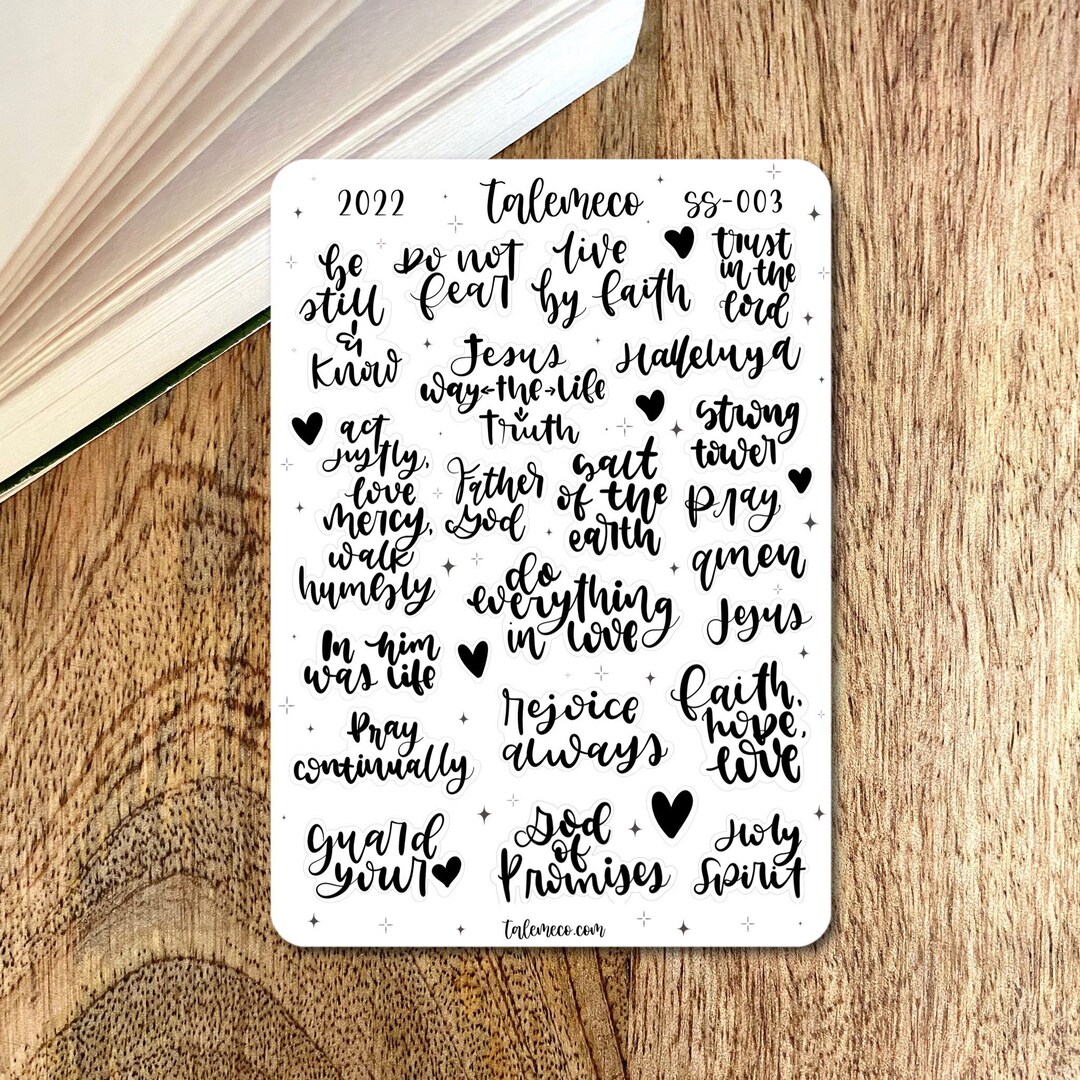 2022 talemeco SS-003
be
still
&
know
Do not
fear
live
by faith
trust
in the
lord
Jesus
way the life
Truth
Halleluya
act
justly,
love
mercy,
walk
humbly
Father
God
salt
of the
earth
strong
tower
pray
amen
Jesus
do
everything
in love
In him
was life
Pray
continually
rejoice
always
faith,
hope,
love
guard
your
God
of
Promises
Holy
Spirit
talemeco.com